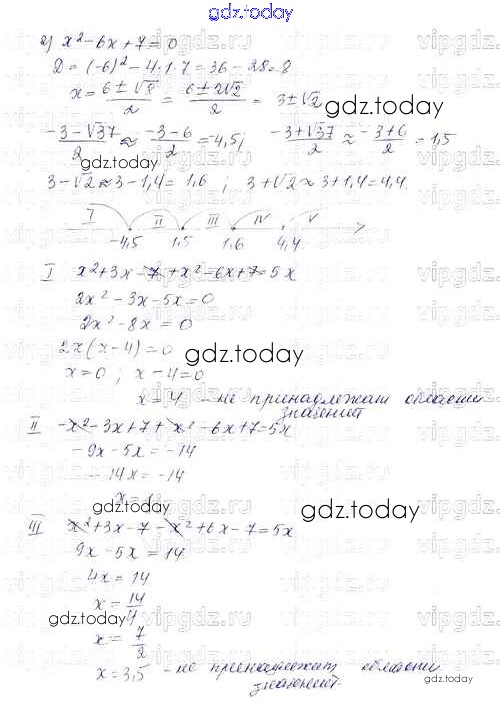 gdz.today
2) x² - 6x + 7 = 0
D = (-6)² - 4·1·7 = 36 - 28 = 8
x = (6 ± √8)/2 = (6 ± 2√2)/2 = 3 ± √2
gdz.today
(-3 - √37)/2 ≈ (-3 - 6)/2 = -4,5; (-3 + √37)/2 ≈ (-3 + 6)/2 = 1,5
gdz.today
3 - √2 ≈ 3 - 1,4 = 1,6 ; 3 + √2 ≈ 3 + 1,4 = 4,4.
I II III IV V
-4,5 1,5 1,6 4,4
I x² + 3x - 7 + x² - 6x + 7 = 5x
2x² - 3x - 5x = 0
2x² - 8x = 0
2x(x - 4) = 0
gdz.today
x = 0 ; x - 4 = 0
x = 4 - не принадлежат области
значений
II -x² - 3x + 7 + x² - 6x + 7 = 5x
-9x - 5x = -14
-14x = -14
gdz.today
III x² + 3x - 7 - x² + 6x - 7 = 5x
9x - 5x = 14
4x = 14
x = 14/4
gdz.today
x = 7/2
x = 3,5 - не принадлежит области
значений.
gdz.today
vipgdz.ru